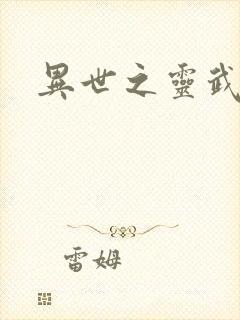 異世之靈武
雷姆